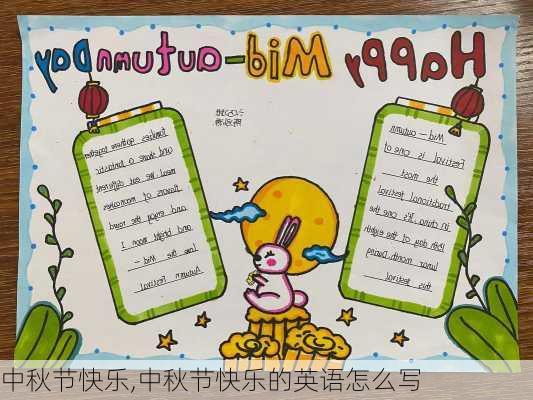 Happy Mid-autumn Day
Mid - autumn
Festival is one of
the most
traditional festival
in china It's one the
15th day of the eighth
lunar month During
this festival
families together
and share a fantastic
meal we eat different
flavors of mooncakes
and enjoy the round
and bright moon I
love the Mid -
Autumn Festival
中秋节快乐,中秋节快乐的英语怎么写